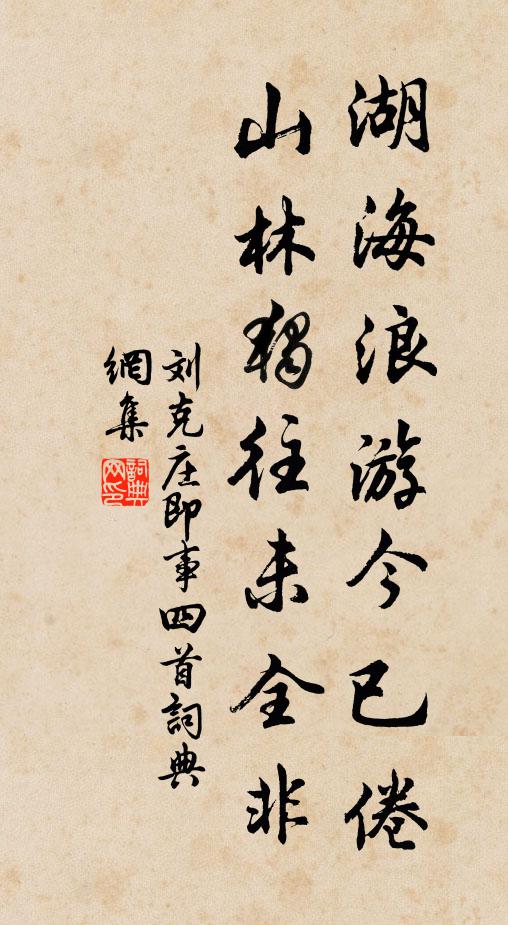 湖海浪游今已倦
山林独往未全非
刘克庄即事四首詞典
網集
詞典
网印